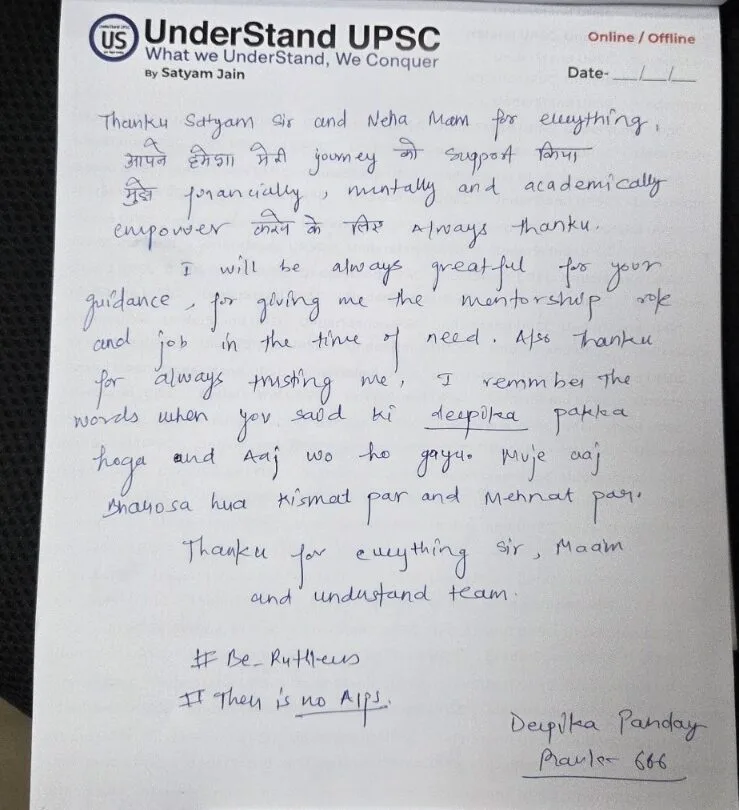 UnderStand UPSC
US UnderStand UPSC
What we UnderStand, We Conquer
By Satyam Jain
Online / Offline
Date- __/__/__
Thanku Satyam Sir and Neha Mam for everything,
आपने हमेशा मेरी journey को support किया
मुझे financially, mentally and academically
empower करने के लिए Always thanku.
I will be always greatful for your
guidance, for giving me the mentorship role
and job in the time of need. Also Thanku
for always trusting me, I remmber The
words when you said ki deepika pakka
hoga and Aaj wo ho gaya. Muje aaj
Bharosa hua Kismat par and Mehnat par.
Thanku for everything sir, Maam
and understand team.
# Be_Ruthless
# There is no Alps.
Deepika Panday
Rank- 666